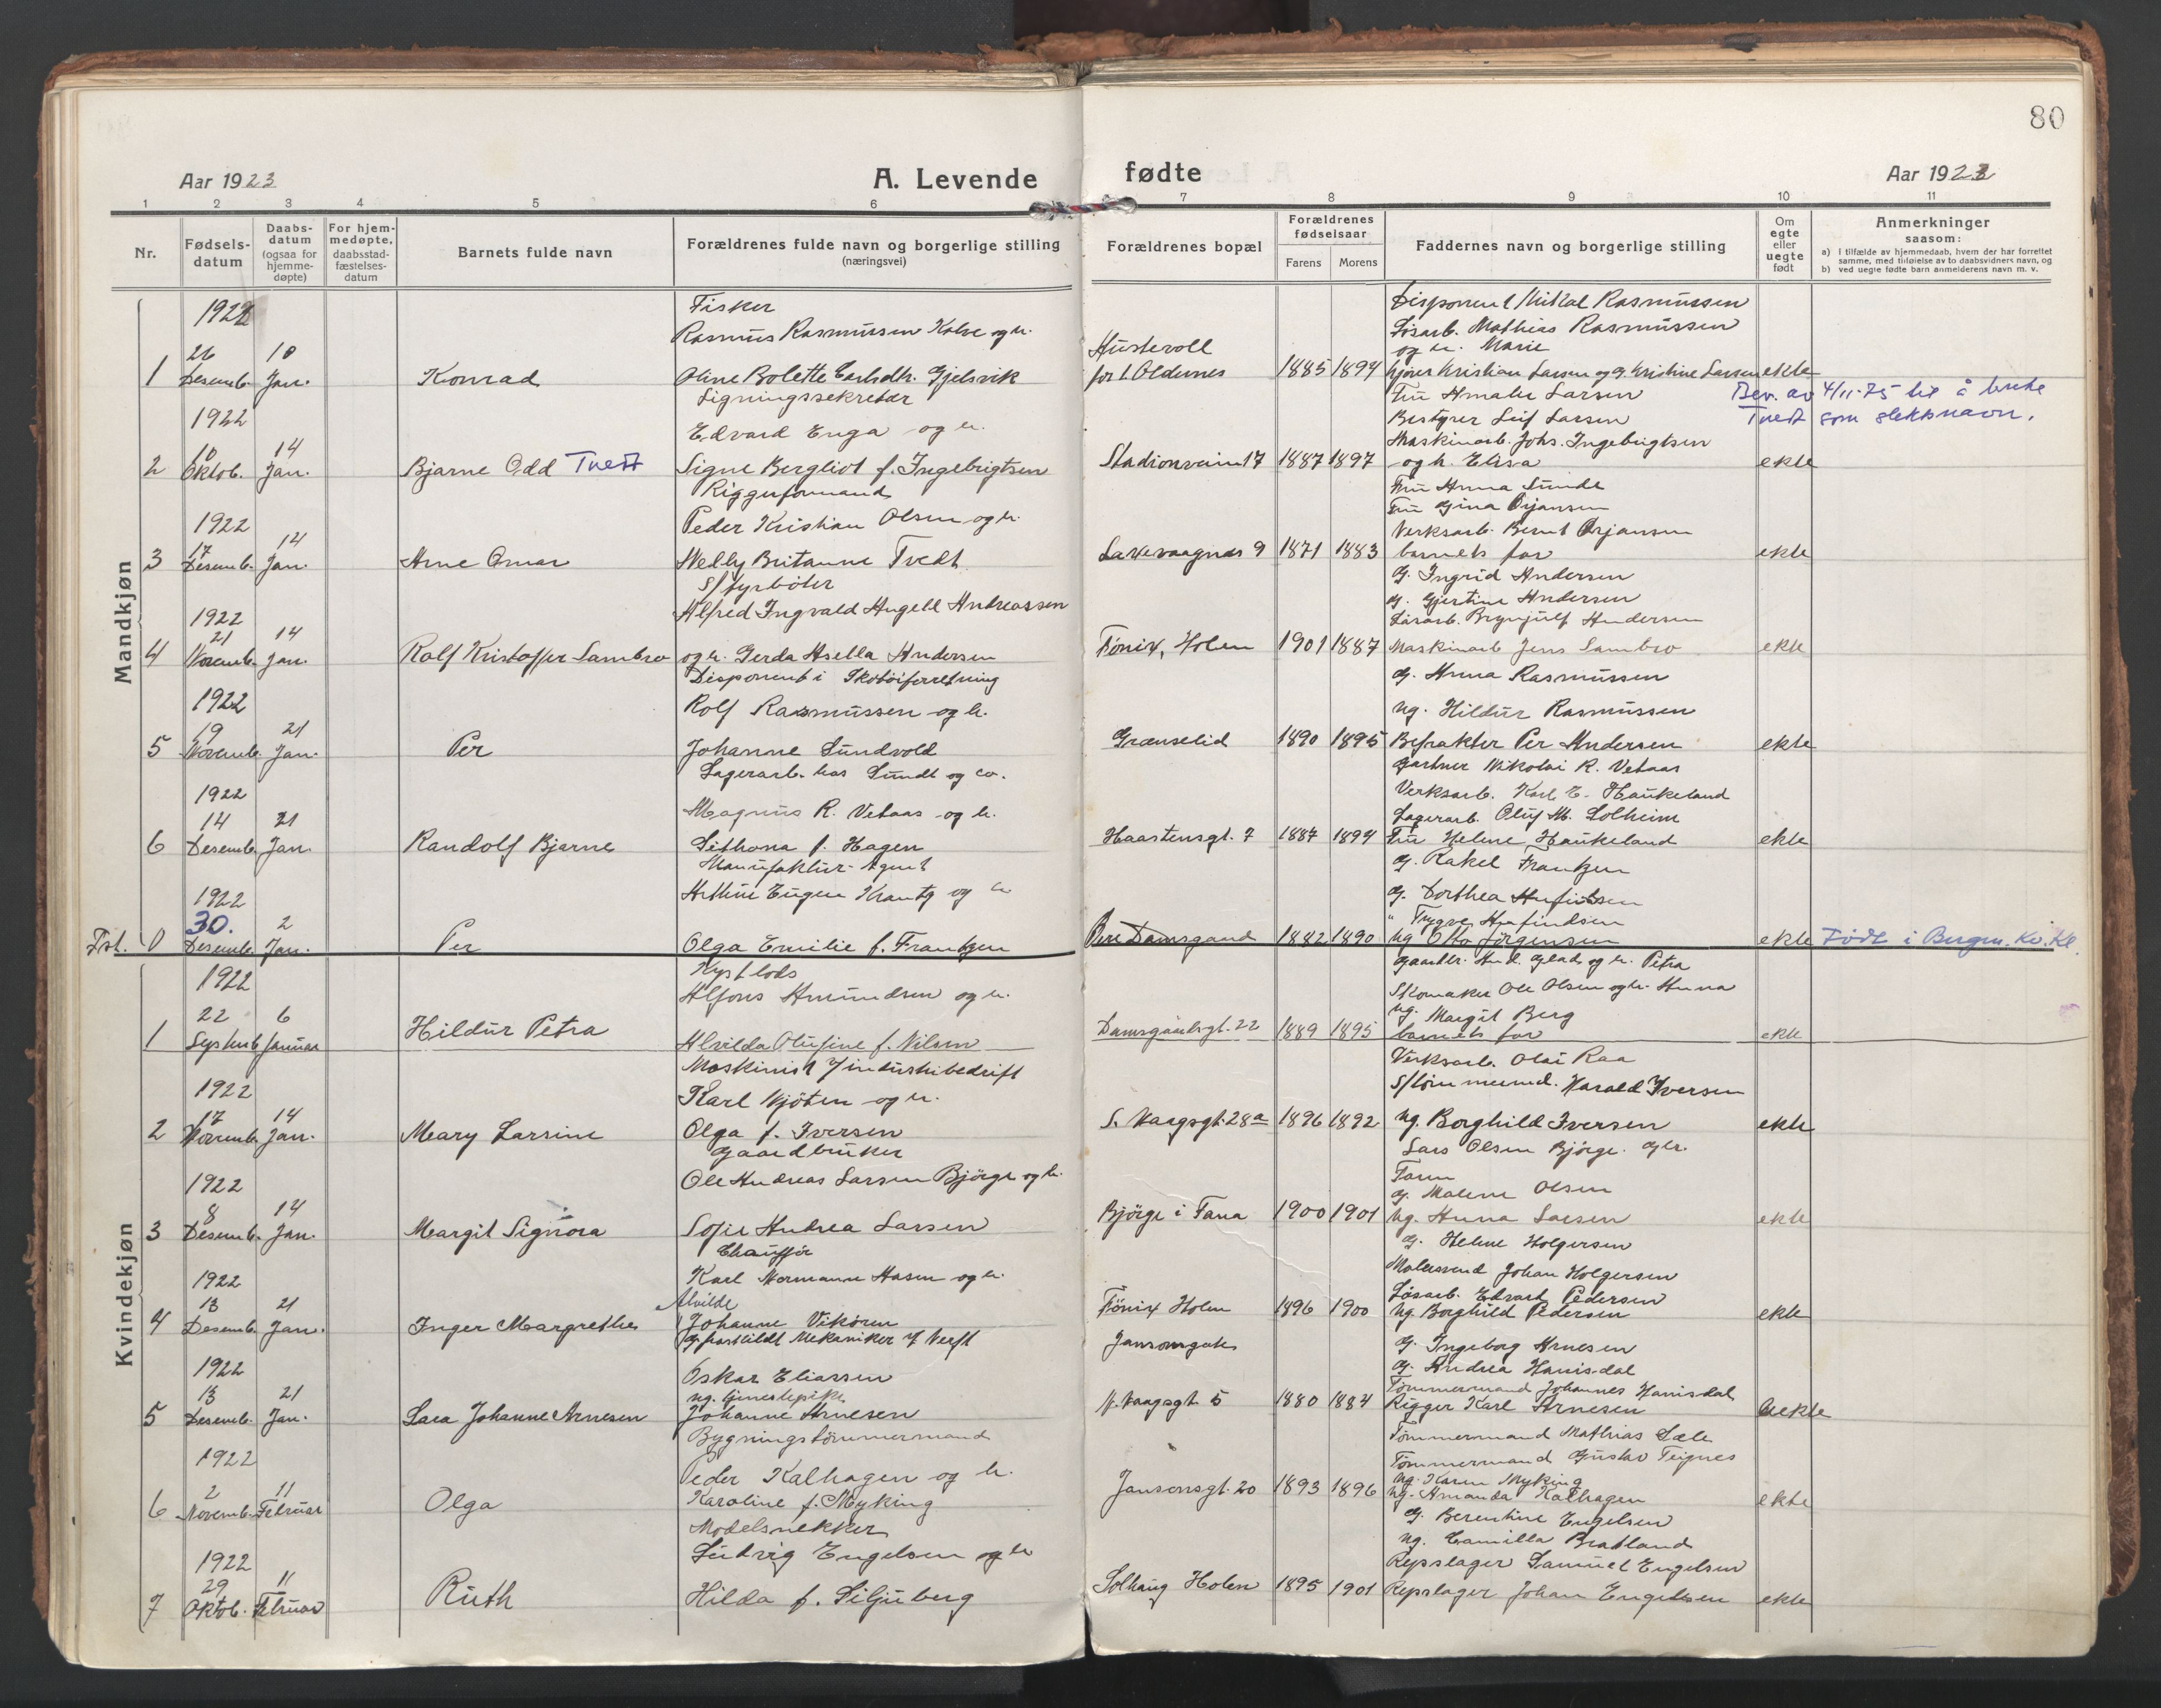 80
Aar 1923
A. Levende
fødte
Aar 1923
1 2 3 4 5 6 7 8 9 10 11
Nr.
Fødsels-
datum
Daabs-
datum
(ogsaa for
hjemme-
døpte)
For hjem-
medøpte,
daabsstad-
fæstelses-
datum
Barnets fulde navn
Forældrenes fulde navn og borgerlige stilling
(næringsvei)
Forældrenes bopæl
Forældrenes
fødselsaar
Farens Morens
Faddernes navn og borgerlige stilling
Om
egte
eller
uegte
født
Anmerkninger
saasom:
a) I tilfælde av hjemmedaab, hvem der har forrettet
samme, med tilføielse av to daabsvidners navn, og
b) ved uegte fødte barn anmelderens navn m. v.
Mandkjøn
1922
Fisker
Rasmus Rasmussen og h.
Disponent Mikal Rasmussen
Løsarb. Mathias Rasmussen
og h. Marie
Hustevoll
1 26 Desemb. 10 Jan. Konrad
Oline Bolette Gjelsvik
for t. Oldernes 1885 1894
Kristian Larsen og g. Kristine Larsen ekte
1922
Ligningssekretær
Edvard Enga og h.
Fru Amalie Larsen
Bestyrer Leif Larsen
Maskinarb. Johs. Ingebrigtsen
Bev. av 4/11-75 til å bruke
Tvedt som slektsnavn.
2 10 Oktob. 14 Jan. Bjarne Odd Tvedt
Signe Bergliot f. Ingebrigtsen
Stadionveien 17 1887 1897
og h. Elisa ekte
1922
Riggerformand
Peder Kristian Olsen og h.
Fru Anna Sunde
Fru Gina Ørjansen
Verksarb. Bernt Ørjansen
3 17 Desemb. 14 Jan. Arne Omar
Nelly Britanne Tvedt
Laxevaagnes 9 1871 1883
barnets far ekte
1922
S/fyrbøter
Alfred Ingvald Angell Andreassen
g. Ingrid Andersen
g. Gjertine Andersen
Løsarb. Brynjulf Andersen
4 21 Novemb. 14 Jan. Rolf Kristoffer Sambro
og h. Gerda Asella Andersen
Fønix, Holen 1901 1887
Maskinarb Jens Sambro ekte
1922
Disponent i Skotøiforretning
Rolf Rasmussen og h.
g. Anna Rasmussen
ug. Hildur Rasmussen
5 19 Novemb. 21 Jan. Per
Johanne Sundvold
Grænselid 1890 1895
Befrakter Per Andersen ekte
1922
Lagerarb. hos Sundt og co.
Magnus R. Vetaas og h.
Gartner Nikolai R. Vetaas
Verksarb. Karl E. Haukeland
Lagerarb. Oluf M. Solheim
6 14 Desemb. 21 Jan. Randolf Bjarne
Lithona f. Hagen
Haastensgt. 7 1887 1894
Fru Helene Haukeland ekte
1922
Manufaktur-Agent
Arthur Eugen Krantz og h
g. Rakel Frantzen
g. Dorthea Anfindsen
" Trygve Anfindsen
Fst. 0 30. Desemb. 2 Jan. Per
Olga Emilie f. Frantzen
Øvre Damsgaard 1882 1890
ug Otto Jørgensen ekte Født i Bergen. Kv. Kl.
Kvindekjøn
1922
Kystlods
Alfons Amundsen og h.
Gaardbr. And. Glad og h. Petra
Skomaker Ole Olsen og h. Anna
ug. Margit Berg
1 22 Septemb 6 Januar Hildur Petra
Alvilda Olufine f. Nilsen
Damsgaardsgt. 22 1889 1895
barnets far ekte
1922
Maskinist i Industribedrift
Karl Njøten og h.
Verksarb. Olai Raa
Harald Iversen
2 17 Novemb. 14 Jan. Mary Larsine
Olga f. Iversen
S. Vaagsgt. 28a 1896 1892
ug. Borghild Iversen ekte
1922
Gaardbruker
Ole Andreas Larsen Bjørge og h.
Lars Olsen Bjørge. Gbr.
Fana
g. Malene Olsen
3 8 Desemb. 14 Jan. Margit Signora
Sofie Andrea Larsen
Bjørge i Fana 1900 1901
ug. Anna Larsen ekte
1922
Chauffør
Karl Normann Hasen og h.
g. Helene Holgersen
Malersvend Johan Holgersen
Løsarb. Edvard Pedersen
4 13 Desemb. 21 Jan. Inger Margrethe
Alvilde
Johanne Vikøren
Fønix Holen 1896 1900
ug. Borghild Pedersen ekte
1922
g. fraskildt Mekaniker v/ Verft
Oskar Eliassen
Jansonsgate
g. Ingeborg Arnesen
g. Andrea Hanisdal
Tømmermand Johannes Hanisdal
5 13 Desemb. 21 Jan. Lara Johanne Arnesen
ug. tjenestepike
Johanne Arnesen
N. Vaagsgt 5 1880 1884
Rigger Karl Arnesen uekte
1922
Bygningstømmermand
Peder Kalhagen og h.
Tømmermand Mathias Sæle
Tømmermand Gustav Teignes
ug. Karen Myking
6 2 Novemb. 11 Februar Olga
Karoline f. Myking
Jansonsgt. 20 1893 1896
ug. Amanda Kalhagen ekte
1922
Modelsnekker
Ludvig Engelsen og h
g. Berentine Engelsen
ug. Camilla Bratland
Repslager Samuel Engelsen
7 29 Oktob. 11 Februar Ruth
Hilda f. Siljuberg
Solhaug Holen 1895 1901
Repslager Johan Engelsen ekte